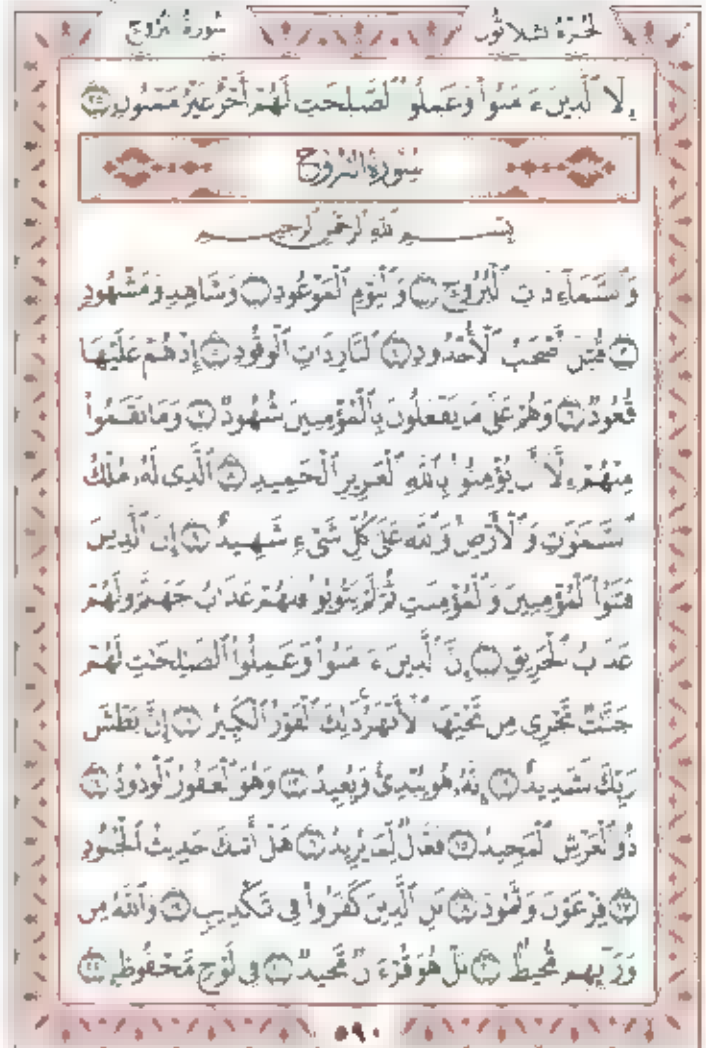 الجزء الثلاثون سورة البروج
إِلَّا ٱلَّذِينَ ءَامَنُوا۟ وَعَمِلُوا۟ ٱلصَّٰلِحَٰتِ لَهُمْ أَجْرٌ غَيْرُ مَمْنُونٍۭ ٢٥
سُورَةُ البُرُوج
بِسْمِ ٱللَّهِ ٱلرَّحْمَٰنِ ٱلرَّحِيمِ
وَٱلسَّمَآءِ ذَاتِ ٱلْبُرُوجِ ١ وَٱلْيَوْمِ ٱلْمَوْعُودِ ٢ وَشَاهِدٍ وَمَشْهُودٍ
٣ قُتِلَ أَصْحَٰبُ ٱلْأُخْدُودِ ٤ ٱلنَّارِ ذَاتِ ٱلْوَقُودِ ٥ إِذْ هُمْ عَلَيْهَا
قُعُودٌ ٦ وَهُمْ عَلَىٰ مَا يَفْعَلُونَ بِٱلْمُؤْمِنِينَ شُهُودٌ ٧ وَمَا نَقَمُوا۟
مِنْهُمْ إِلَّآ أَن يُؤْمِنُوا۟ بِٱللَّهِ ٱلْعَزِيزِ ٱلْحَمِيدِ ٨ ٱلَّذِى لَهُۥ مُلْكُ
ٱلسَّمَٰوَٰتِ وَٱلْأَرْضِ وَٱللَّهُ عَلَىٰ كُلِّ شَىْءٍ شَهِيدٌ ٩ إِنَّ ٱلَّذِينَ
فَتَنُوا۟ ٱلْمُؤْمِنِينَ وَٱلْمُؤْمِنَٰتِ ثُمَّ لَمْ يَتُوبُوا۟ فَلَهُمْ عَذَابُ جَهَنَّمَ وَلَهُمْ
عَذَابُ ٱلْحَرِيقِ ١٠ إِنَّ ٱلَّذِينَ ءَامَنُوا۟ وَعَمِلُوا۟ ٱلصَّٰلِحَٰتِ لَهُمْ
جَنَّٰتٌ تَجْرِى مِن تَحْتِهَا ٱلْأَنْهَٰرُ ذَٰلِكَ ٱلْفَوْزُ ٱلْكَبِيرُ ١١ إِنَّ بَطْشَ
رَبِّكَ لَشَدِيدٌ ١٢ إِنَّهُۥ هُوَ يُبْدِئُ وَيُعِيدُ ١٣ وَهُوَ ٱلْغَفُورُ ٱلْوَدُودُ ١٤
ذُو ٱلْعَرْشِ ٱلْمَجِيدُ ١٥ فَعَّالٌ لِّمَا يُرِيدُ ١٦ هَلْ أَتَىٰكَ حَدِيثُ ٱلْجُنُودِ
١٧ فِرْعَوْنَ وَثَمُودَ ١٨ بَلِ ٱلَّذِينَ كَفَرُوا۟ فِى تَكْذِيبٍ ١٩ وَٱللَّهُ مِن
وَرَآئِهِم مُّحِيطٌۢ ٢٠ بَلْ هُوَ قُرْءَانٌ مَّجِيدٌ ٢١ فِى لَوْحٍ مَّحْفُوظٍۭ ٢٢
٥٩٠